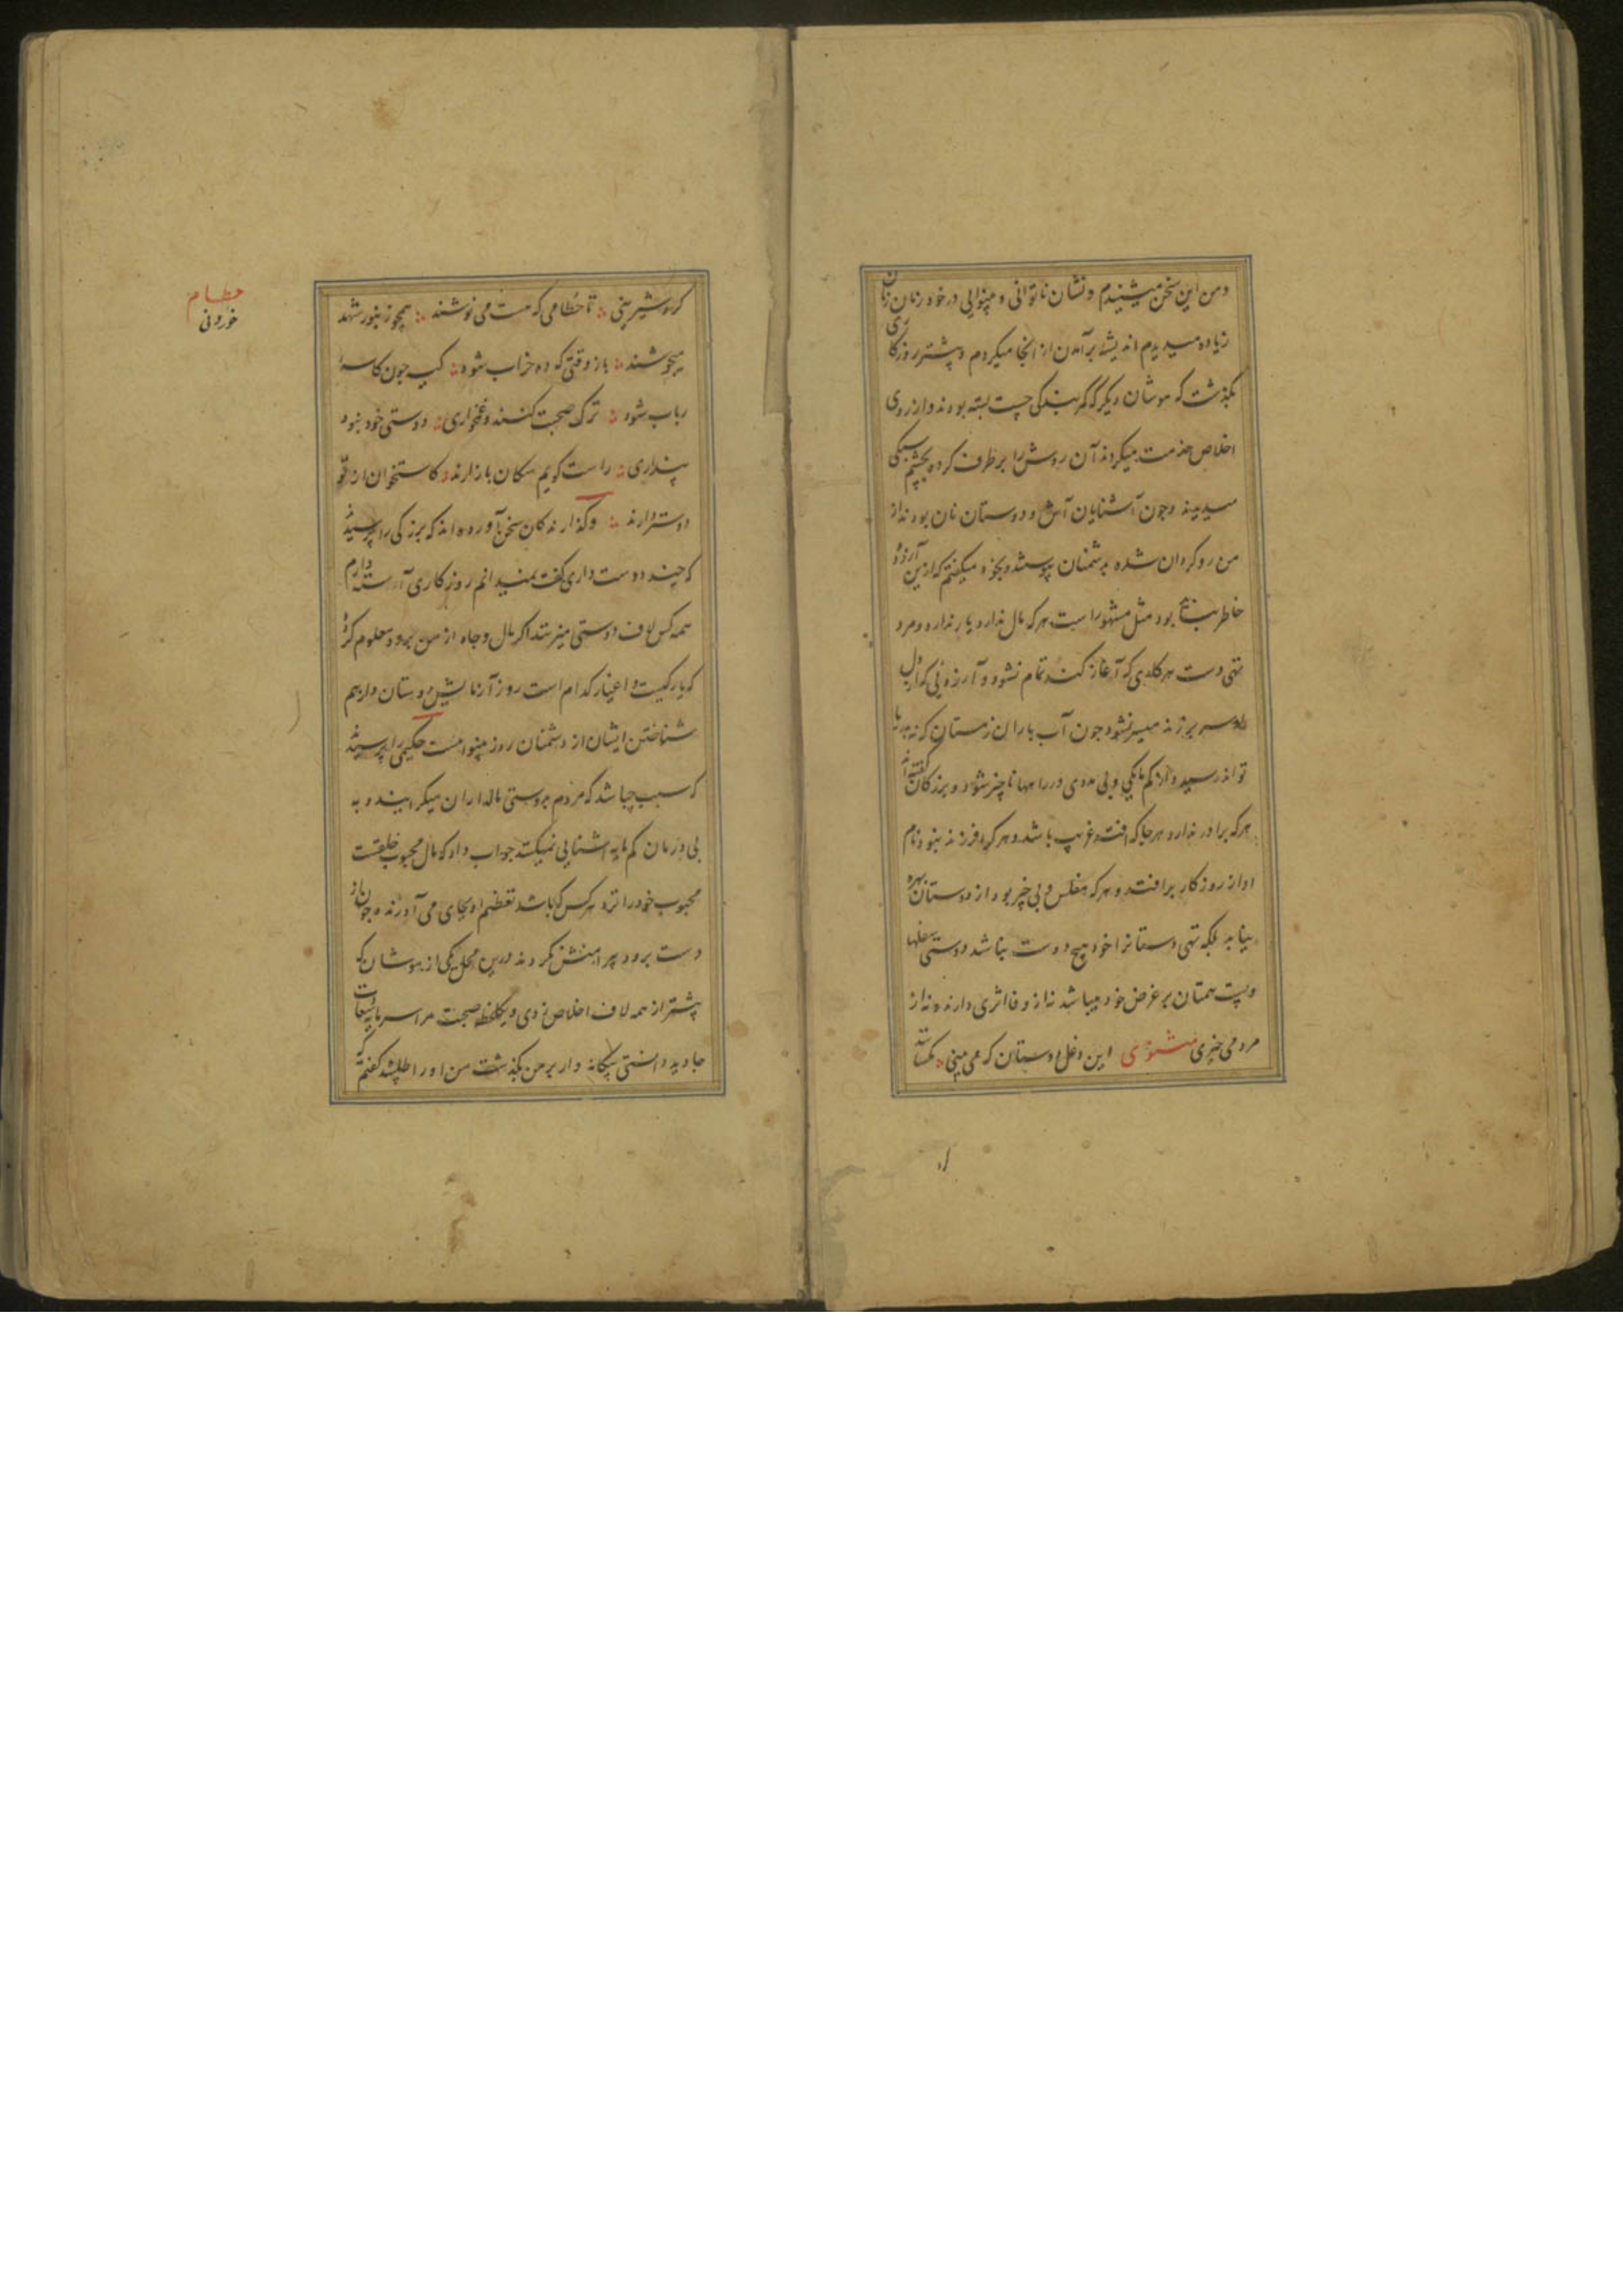 و من این سخن میشنیدم و نشان ناتوانی و بینوایی در خود زمان زمان
زیاده میدیدم اندیشه برآمدن از انجا میکردم و پیشتر روزکاری
نکذشت که موشان دیکر که کمر بندکی چست بسته بودند و از روی
اخلاص خدمت میکردند آن روش را برطرف کرده بچشم سبکی
میدیدند و چون آشنایان آش و دوستان نان بودند از
من روکردان شده بدشمنان پیوستند و بخود میکفتم که ازین آرزو
خاطر بود مثل مشهور است هر که مال ندارد یار ندارد و مرد
تهی دست هر کاری که آغاز کند تمام نشود و آرزویی که از دل
او سر برزند میسر نشود چون آب باران زمستان که نه بدریا
تواند رسید و از کم مایکی و بی مددی در راهها ناچیز شود و بزرکان گفته اند
هر که برادر ندارد هر جا که افتد غریب باشد و هر کرا فرزند نبود نام
او از روزکار برافتد و هر که مفلس و بی چیز بود از دوستان بهره
نیابد بلکه تهی دستانرا خود هیچ دوست نباشد دوستی سفلها
و پست همتان بر غرض خود میباشد نه از وفا اثری دارند و نه از
مردمی خبری مثنوی این دغل دوستان که می بینی مکسانند
کرد شیرینی تا حطامی که هست می نوشند همچو زنبور شهد
میجوشند باز وقتی که ده خراب شود کیسه چون کاسهٔ
رباب شود ترک صحبت کنند و غمخواری دوستی خود نبود
پنداری راست کویم سکان بازارند کاستخوان از تو
دوستر دارند و کذارندکان سخن آورده اند که بزرکی را پرسیدند
که چند دوست داری کفت نمیدانم روزکاری آراسته دارم
همه کس لاف دوستی میزنند اکر مال و جاه از من برود معلوم کردد
که یار کیست و اغیار کدام است روز آزمایش دوستان و از هم
شناختن ایشان از دشمنان روز بینوائست حکیمی را پرسیدند
که سبب چه باشد که مردم بدوستی مالداران میکرایند و به
بی درمان کم مایه اشنایی نمیکنند جواب داد که مال محبوب خلقست
محبوب خود را نزد هر کس که باشد تعظیم او بجای می آورند و چون از
دست برود پیرامنش نکردند درین محل یکی از موشان که
پیشتر از همه لاف اخلاص زدی و یکلحظه صحبت مرا سرمایهٔ سعادت
جاوید دانستی بیکانه وار بر من بکذشت من او را طلبیده کفتم که
حطام
خوردنی